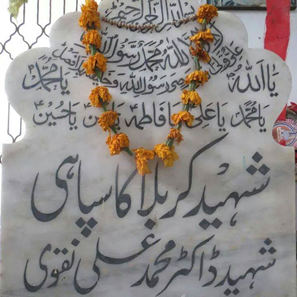 بسم اللہ الرحمن الرحیم
لا الہ الا اللہ محمد رسول اللہ
یا اللہ یا محمد
یا محمد یا علی یا فاطمہ یا حسن یا حسین
شہید کربلا کا سپاہی
شہید ڈاکٹر محمد علی نقوی